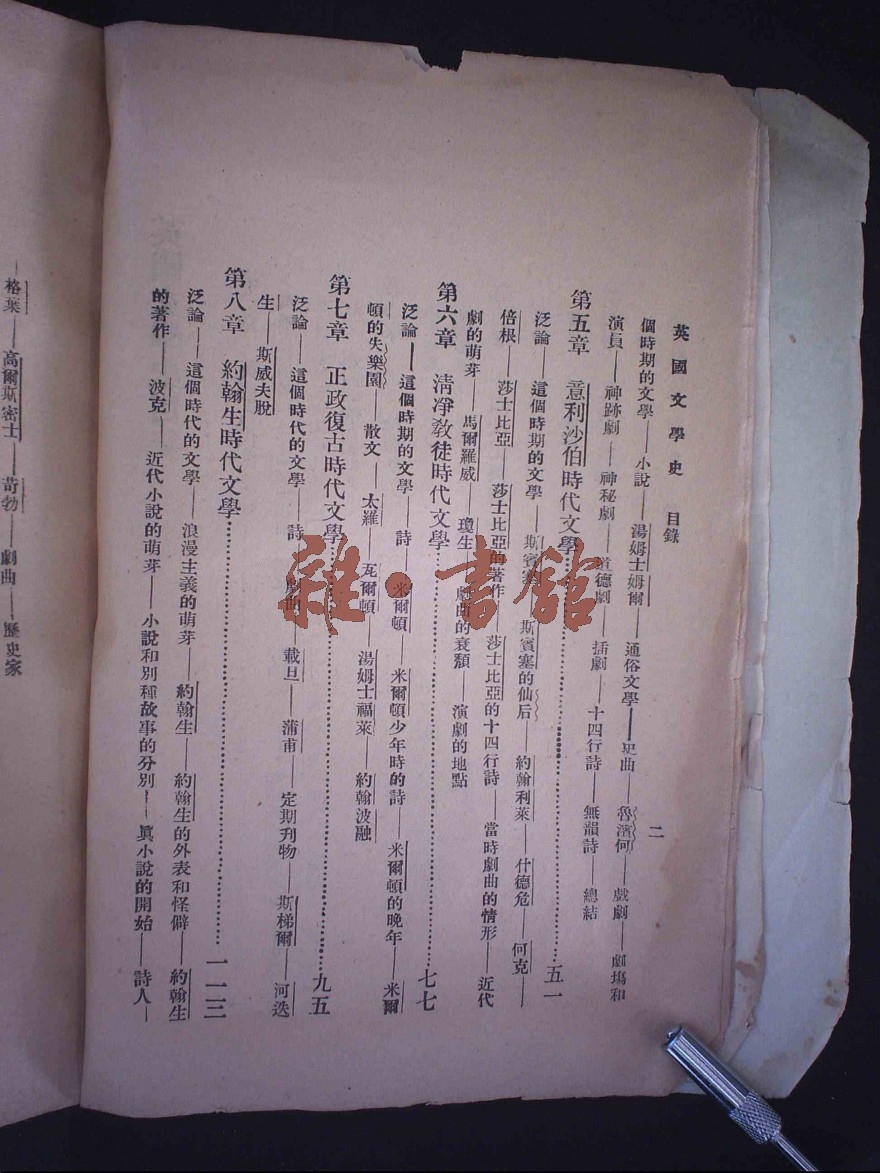 英國文學史　目錄
二
個時期的文學——小說——湯姆士姆爾——通俗文學——史曲——魯濱何——戲劇——劇塲和
演員——神跡劇——神秘劇——道德劇——插劇——十四行詩——無韻詩——總結
第五章　意利沙伯時代文學……五一
泛論——這個時期的文學——斯賓塞——斯賓塞的仙后——約翰利萊——什德危——何克——
倍根——莎士比亞——莎士比亞的著作——莎士比亞的十四行詩——當時劇曲的情形——近代
劇的萌芽——馬爾羅威——瓊生——劇曲的衰頹——演劇的地點
第六章　清凈教徒時代文學……七七
泛論——這個時期的文學——詩——米爾頓——米爾頓少年時的詩——米爾頓的晚年——米爾
頓的失樂園——散文——太羅——瓦爾頓——湯姆士福萊——約翰波融
第七章　正政復古時代文學……九五
泛論——這個時代的文學——詩——劇曲——載旦——蒲甫——定期刋物——斯梯爾——河迭
生——斯威夫脫
第八章　約翰生時代文學……一一三
泛論——這個時代的文學——浪漫主義的萌芽——約翰生——約翰生的外表和怪僻——約翰生
的著作——波克——近代小說的萌芽——小說和別種故事的分別——眞小說的開始——詩人——
格葉——高爾斯密士——苛勃——劇曲——歷史家
雜·書館